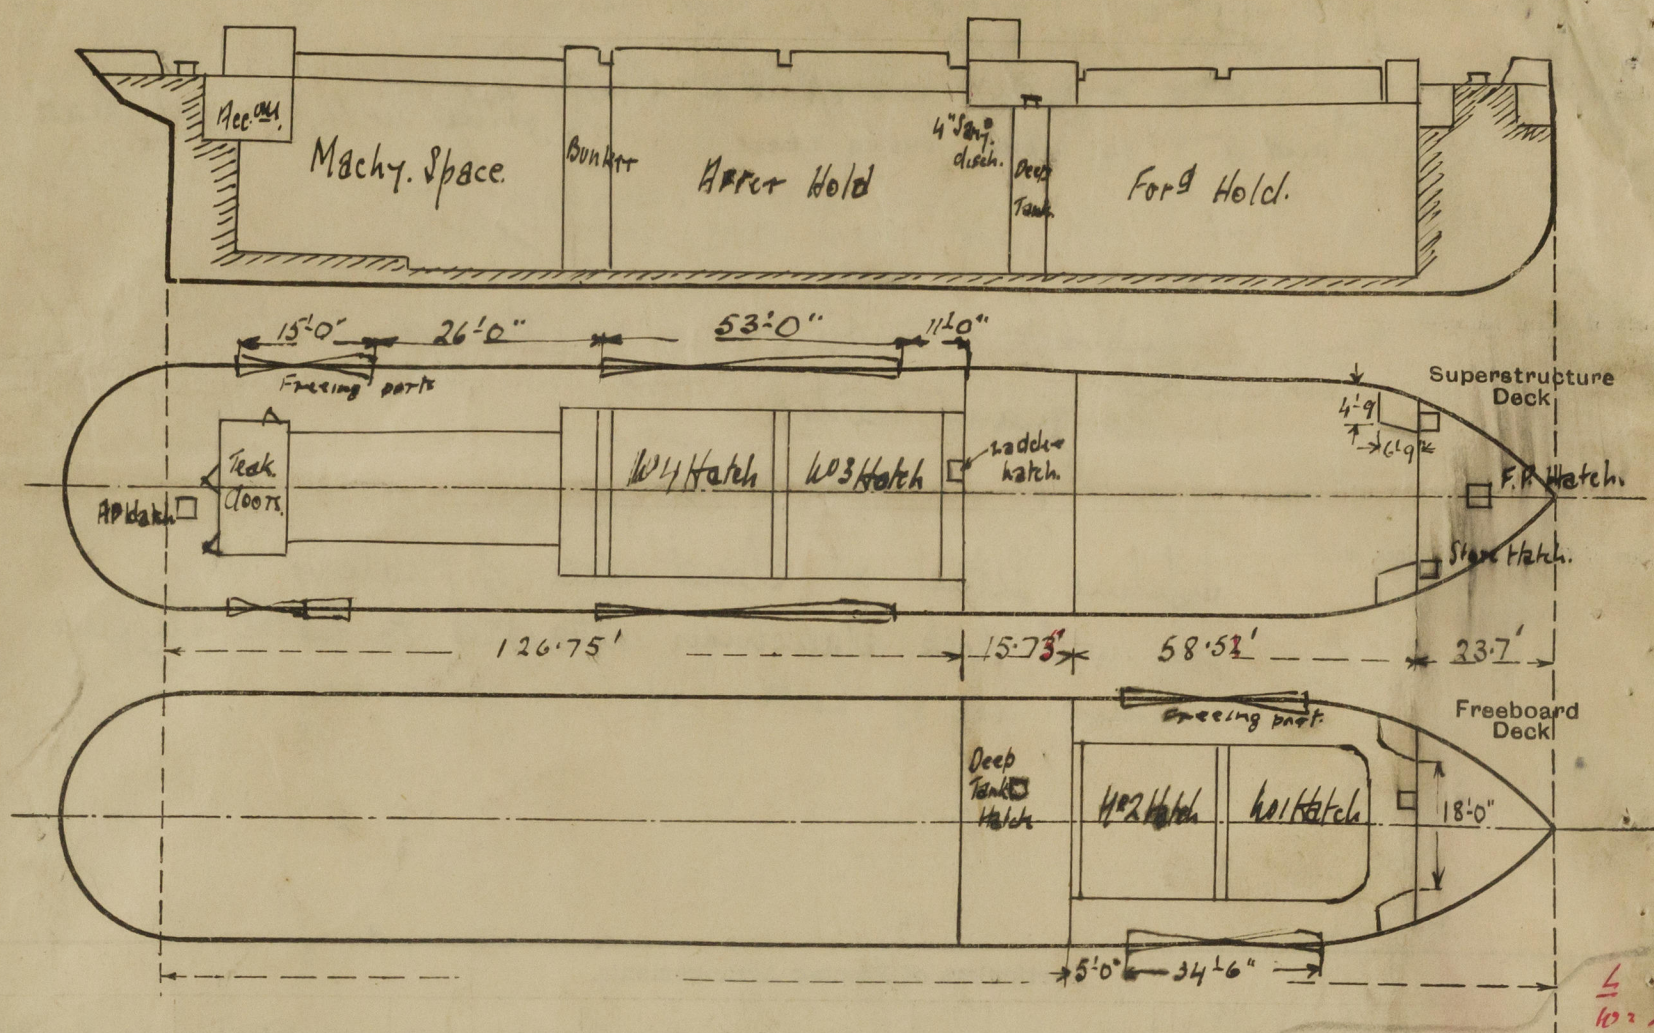 Acc. om.
Machy. Space.
Bunker
After Hold
4" Sany. disch.
Deep
Tank.
For'd Hold.
15'-0" 26'-0" 53'-0" 11'-0"
Freeing ports
Superstructure
Deck
4'-9
6'-9
Teak
doors.
No 4 Hatch No 3 Hatch
Ladder
hatch.
AP Hatch
F.P. Hatch.
Store Hatch.
126.75' 15.73' 58.52' 23.7'
Freeing port.
Freeboard
Deck
Deep
Tank
Hatch
No 2 Hatch No 1 Hatch
18'-0"
5'-0" 34'-6"